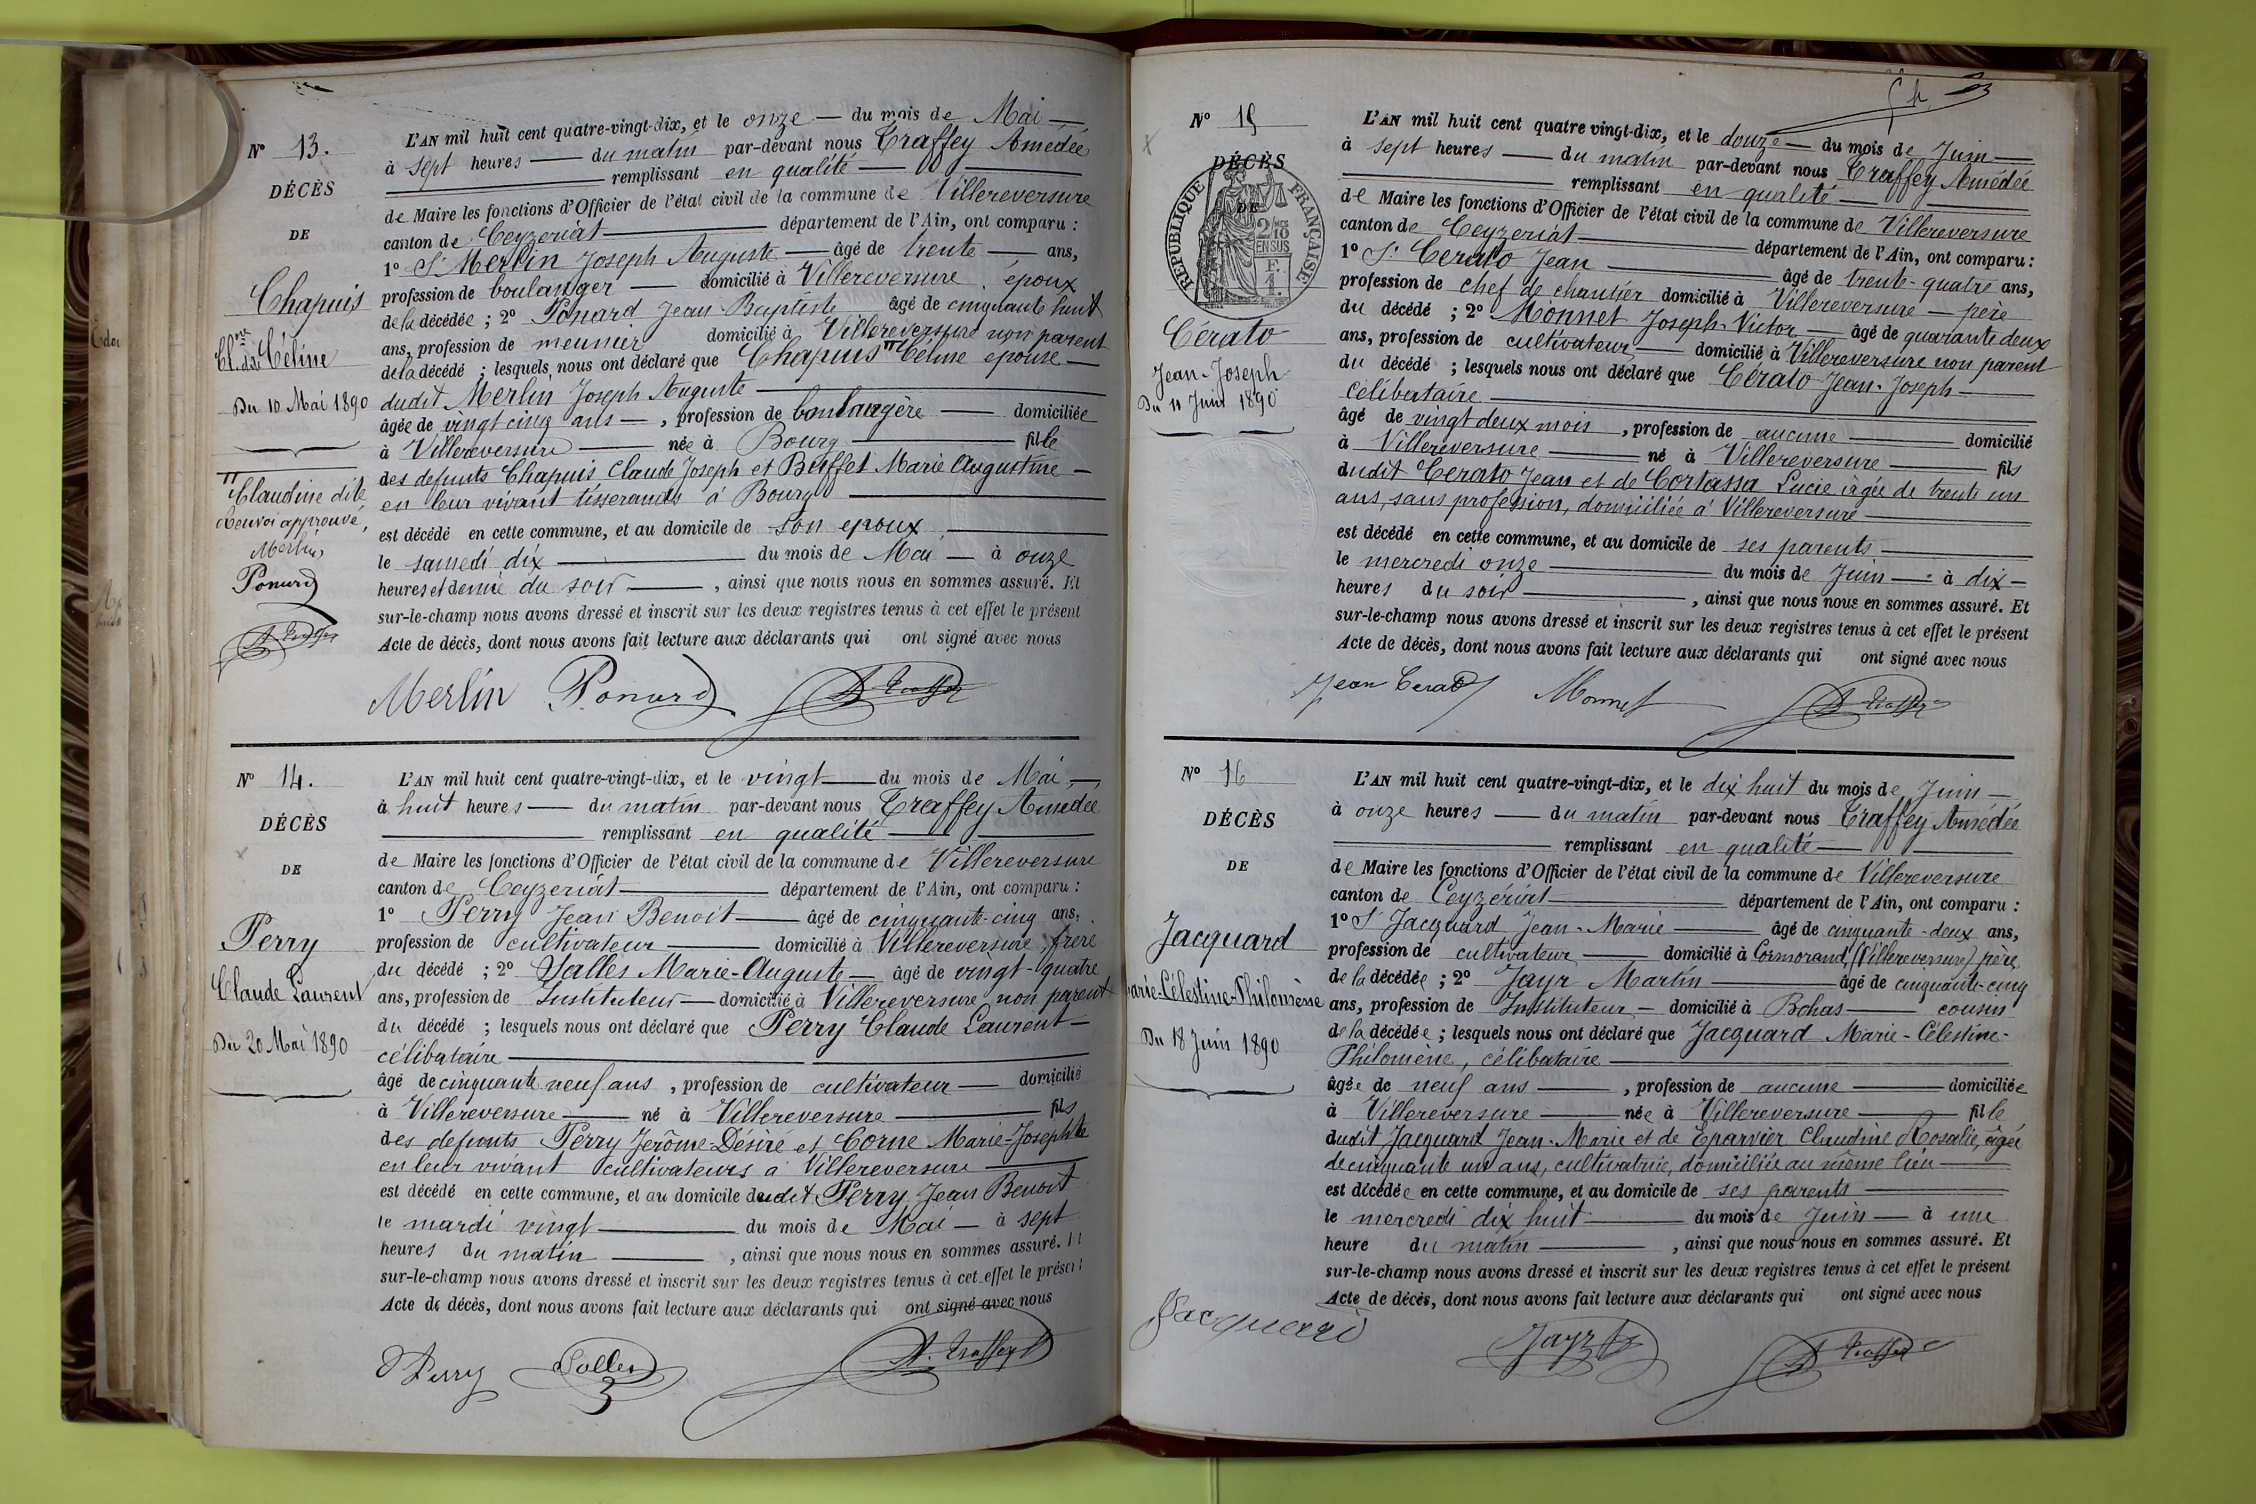 N° 13.
DÉCÈS
DE
Chapuis
Cl.ine dite Céline
Du 10 Mai 1890
Claudine dite
Renvoi approuvé,
Merlin
Ponard
L'AN mil huit cent quatre-vingt-dix, et le onze du mois de Mai
à sept heures du matin par-devant nous Traffey Amédée
remplissant en qualité
de Maire les fonctions d'Officier de l'état civil de la commune de Villereversure
canton de Ceyzeriat département de l'Ain, ont comparu :
1° Sr Merlin Joseph Auguste âgé de trente ans,
profession de boulanger domicilié à Villereversure époux
de la décédée ; 2° Ponard Jean Baptiste âgé de cinquante huit
ans, profession de meunier domicilié à Villereversure non parent
de la décédé ; lesquels nous ont déclaré que Chapuis " Céline épouse
dudit Merlin Joseph Auguste
âgée de vingt cinq ans, profession de boulangère domiciliée
à Villereversure née à Bourg fille
des defunts Chapuis Claude Joseph et Buffet Marie Augustine
en leur vivant tisserands à Bourg
est décédé en cette commune, et au domicile de son epoux
le samedi dix du mois de Mai à onze
heures et demie du soir, ainsi que nous nous en sommes assuré. Et
sur-le-champ nous avons dressé et inscrit sur les deux registres tenus à cet effet le présent
Acte de décès, dont nous avons fait lecture aux déclarants qui ont signé avec nous
Merlin Ponard A. Traffey
N° 14.
DÉCÈS
DE
Perry
Claude Laurent
Du 20 Mai 1890
L'AN mil huit cent quatre-vingt-dix, et le vingt du mois de Mai
à huit heures du matin par-devant nous Traffey Amédée
remplissant en qualité
de Maire les fonctions d'Officier de l'état civil de la commune de Villereversure
canton de Ceyzeriat département de l'Ain, ont comparu :
1° Perry Jean Benoit âgé de cinquante-cinq ans,
profession de cultivateur domicilié à Villereversure, frère
du décédé ; 2° Salles Marie-Auguste âgé de vingt-quatre
ans, profession de Instituteur domicilié à Villereversure non parent
du décédé ; lesquels nous ont déclaré que Perry Claude Laurent
célibataire
âgé de cinquante neuf ans, profession de cultivateur domicilié
à Villereversure né à Villereversure fils
des defunts Perry Jérôme-Désiré et Corne Marie-Josephte
en leur vivant cultivateurs à Villereversure
est décédé en cette commune, et au domicile dudit Perry Jean Benoit
le mardi vingt du mois de Mai à sept
heures du matin, ainsi que nous nous en sommes assuré. Et
sur-le-champ nous avons dressé et inscrit sur les deux registres tenus à cet effet le présent
Acte de décès, dont nous avons fait lecture aux déclarants qui ont signé avec nous
Perry Salles A. Traffey
N° 15
DÉCÈS
DE
RÉPUBLIQUE FRANÇAISE
2/10 EN SUS
Cérato
Jean-Joseph
Du 11 Juin 1890
L'AN mil huit cent quatre vingt-dix, et le douze du mois de Juin
à sept heures du matin par-devant nous Traffey Amédée
remplissant en qualité
de Maire les fonctions d'Officier de l'état civil de la commune de Villereversure
canton de Ceyzeriat département de l'Ain, ont comparu :
1° Sr Cerato Jean âgé de trente-quatre ans,
profession de chef de chantier domicilié à Villereversure père
du décédé ; 2° Monnet Joseph Victor âgé de quarante deux
ans, profession de cultivateur domicilié à Villereversure non parent
du décédé ; lesquels nous ont déclaré que Cerato Jean-Joseph
célibataire
âgé de vingt deux mois, profession de aucune domicilié
à Villereversure né à Villereversure fils
dudit Cerato Jean et de Cortassa Lucie âgée de trente un
ans, sans profession, domiciliée à Villereversure
est décédé en cette commune, et au domicile de ses parents
le mercredi onze du mois de Juin à dix
heures du soir, ainsi que nous nous en sommes assuré. Et
sur-le-champ nous avons dressé et inscrit sur les deux registres tenus à cet effet le présent
Acte de décès, dont nous avons fait lecture aux déclarants qui ont signé avec nous
Jean Cerato Monnet A. Traffey
N° 16
DÉCÈS
DE
Jacquard
Marie-Célestine-Philomène
Du 18 Juin 1890
L'AN mil huit cent quatre-vingt-dix, et le dix huit du mois de Juin
à onze heures du matin par-devant nous Traffey Amédée
remplissant en qualité
de Maire les fonctions d'Officier de l'état civil de la commune de Villereversure
canton de Ceyzériat département de l'Ain, ont comparu :
1° Sr Jacquard Jean-Marie âgé de cinquante-deux ans,
profession de cultivateur domicilié à Cormorand, (Villereversure) père
de la décédée ; 2° Jayr Martin âgé de cinquante-cinq
ans, profession de Instituteur domicilié à Bohas cousin
de la décédée ; lesquels nous ont déclaré que Jacquard Marie-Célestine-
Philomène, célibataire
âgée de neuf ans, profession de aucune domiciliée
à Villereversure née à Villereversure fille
dudit Jacquard Jean-Marie et de Eparvier Claudine Rosalie, âgée
de cinquante un ans, cultivatrice, domiciliée au même lieu
est décédée en cette commune, et au domicile de ses parents
le mercredi dix huit du mois de Juin à une
heure du matin, ainsi que nous nous en sommes assuré. Et
sur-le-champ nous avons dressé et inscrit sur les deux registres tenus à cet effet le présent
Acte de décès, dont nous avons fait lecture aux déclarants qui ont signé avec nous
Jacquard Jayr A. Traffey